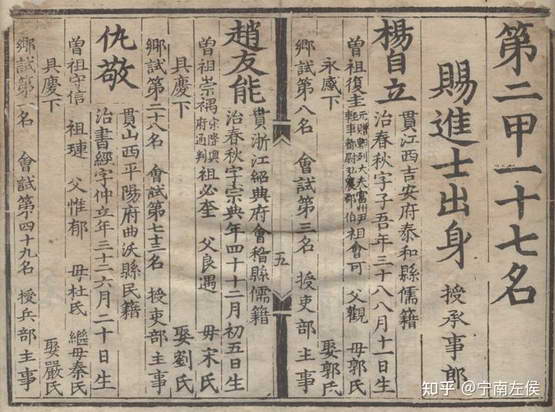 第二甲一十七名
賜進士出身 授承事郎
楊自立 貫江西吉安府泰和縣儒籍
治春秋字子吾年三十八八月十一日生
曾祖復圭 祖會可 父觀 母郭氏
永感下 娶郭氏
鄉試第八名 會試第三名 授吏部主事
五
趙友能 貫浙江紹興府會稽縣儒籍
治春秋字宗典年四十十二月初五日生
曾祖崇 府通判 祖必奎 父良遇 母宋氏
具慶下 娶劉氏
鄉試第二十八名 會試第七十二名 授吏部主事
仇敬 貫山西平陽府曲沃縣民籍
治書經字仲立年三十二六月二十日生
曾祖守信 祖璉 父惟郁 母杜氏 繼母秦氏
具慶下 娶嚴氏
鄉試第一名 會試第四十九名 授兵部主事
知乎 @宁南左侯